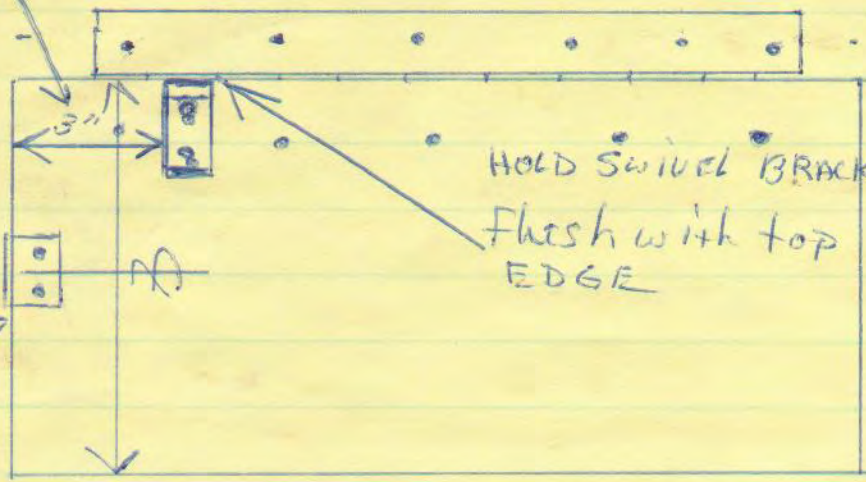 3"
HOLD SWIVEL BRACK
flush with top
EDGE